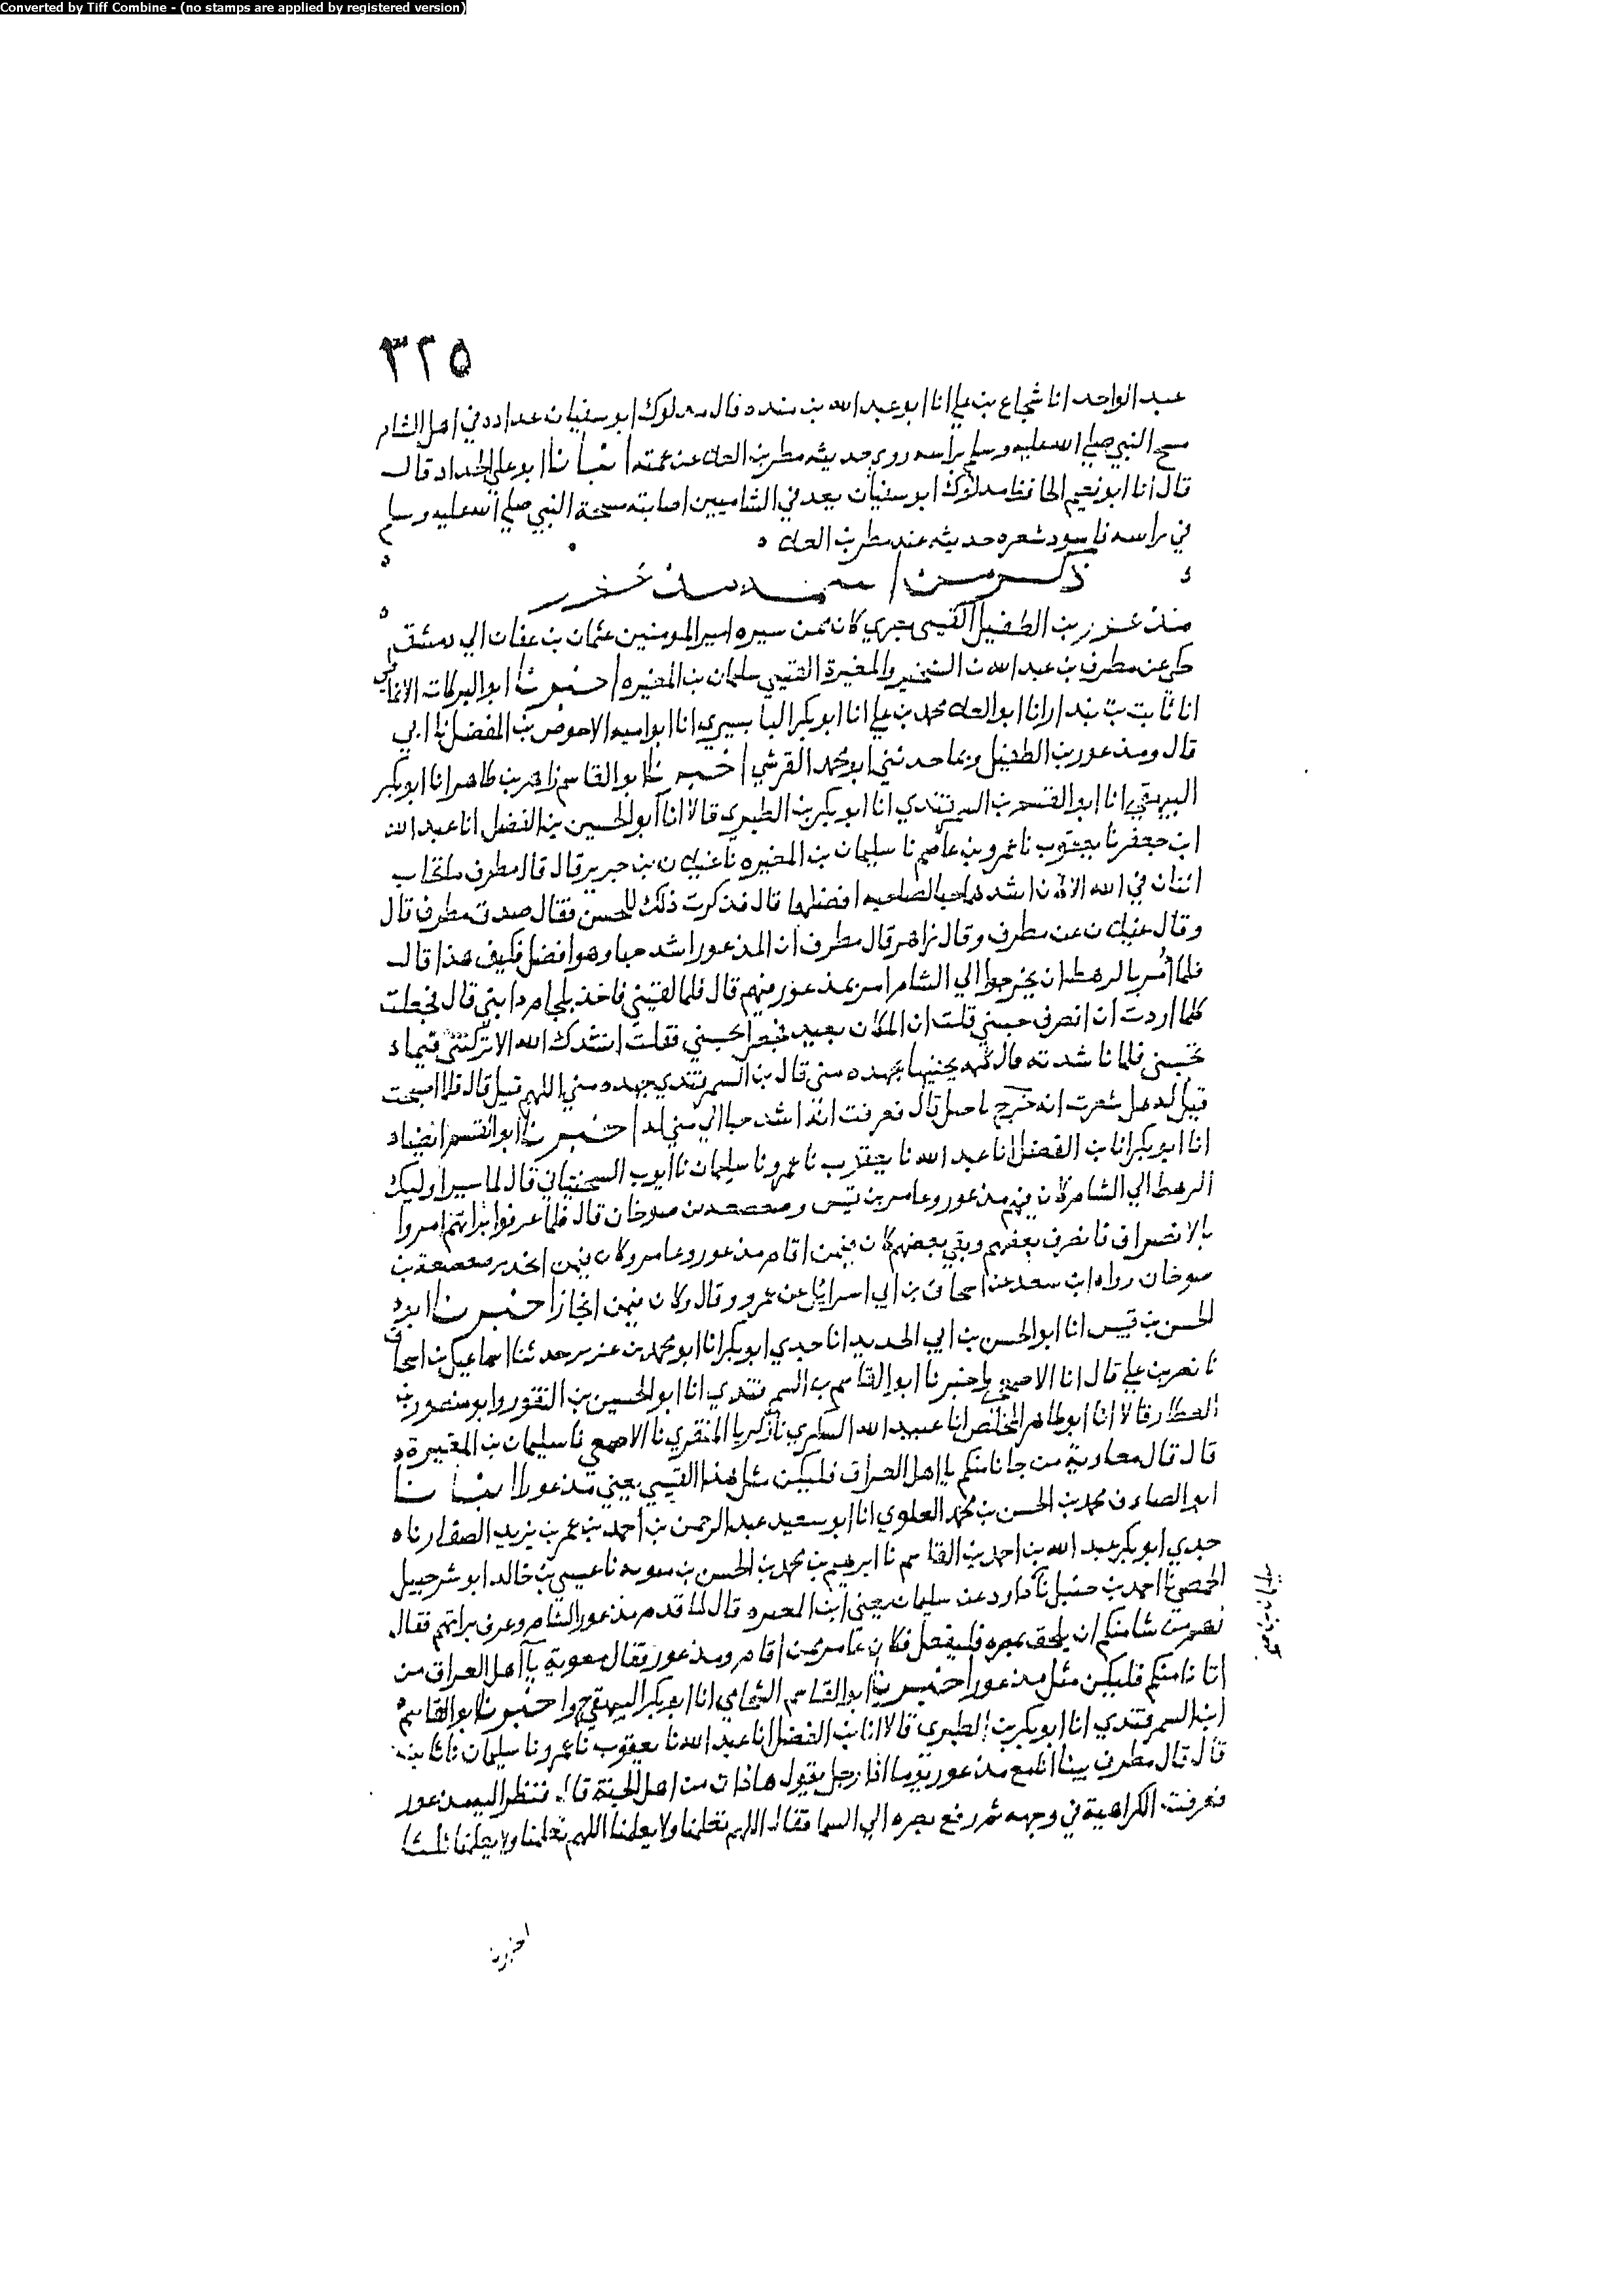 Converted by Tiff Combine - (no stamps are applied by registered version)
٣٢٥
عبد الواحد انا شجاع بن علي انا ابو عبد الله بن منده قال مدلوك ابو سفيان عداده في اهل الشام
مسح النبي صلي الله عليه وسلم براسه روي حديثه مطر بن العلا عن عمته انبانا ابو علي الحداد قال
قال انا ابو نعيم الحافظ مدلوك ابو سفيان يعد في الشاميين اصابته مسحة النبي صلي الله عليه وسلم
في راسه فاسود شعره حديثه عند مطر بن العلا
ذكر من اسمه مذعور
مذعور بن الطفيل القيسي بصري كان ممن سيره امير المومنين عثمان بن عفان الي دمشق
حكي عن مطرف بن عبد الله بن الشخير والمغيرة القيسي سليمان بن المغيره اخبرنا ابو البركات الانماطي
انا ثابت بن بندار انا ابو العلا محمد بن علي انا ابو بكر البابسيري انا ابو اميه الاحوص بن المفضل نا ابي
قال ومذعور بن الطفيل وبما حدثني ابو محمد القرشي اخبرنا ابو القاسم زاهر بن طاهر انا ابو بكر
البيهقي انا ابو القسم بن السمرقندي انا ابو بكر بن الطبري قالا انا ابو الحسين بن الفضل انا عبد الله
ابن جعفر نا يعقوب نا عمرو بن عاصم نا سليمان بن المغيره نا غيلان بن جرير قال قال مطرف ما تحاب
اثنان في الله الا كان اشدهما حبا لصاحبه افضلهما قال فذكرت ذلك للحسن فقال صدق مطرف قال
وقال غيلان عن مطرف وقال زاهر قال مطرف ان المذعور اشد حبا وهو افضل فكيف هذا قال
فلما امر بالرهط ان يخرجوا الي الشام امر بمذعور منهم قال فلما لقيني فاخذ بلجام دابتي قال فجعلت
كلما اردت ان انصرف حبسني قلت ان المكان بعيد فجعل يحبسني فقلت انشدك الله الا تركتني فيما
تحبسني فلما ناشدته قال كلمه يخفيها جهده مني قال بن السمرقندي جهده مني اللهم فيك قال فلما اصبحت
قيل له هل شعرت انه خرج باصل قال فعرفت انه اشد حبا لي مني له اخبرنا ابو القسم ايضا
انا ابو بكر انا بن الفضل انا عبد الله نا يعقوب نا عمرو نا سليمان نا ايوب السختياني قال لما سير اوليك
الرهط الي الشام كان فيهم مذعور وعامر بن قيس وصعصعه بن صوخان قال فلما عرفوا براتهم امروا
بالانصراف فانصرف بعضهم وبقي بعضهم كان فيمن اقام مذعور وعامر وكان فيمن انحدر صعصعة بن
صوخان رواه ابن سعد عن اسحاق بن ابي اسرائل عن عمرو وقال وكان فيمن انحاز اخبرنا ابو
الحسن بن قيس انا ابو الحسن بن ابي الحديد انا جدي ابو بكر انا ابو محمد بن عزير حدثنا اسماعيل بن اسحاق
نا نصر بن علي قال انا الاصمعي ح واخبرنا ابو القاسم بن السمرقندي انا ابو الحسين بن النقور وابو منصور بن
العطار قالا انا ابو طاهر المخلص انا عبيد الله السكري نا زكريا المنقري نا الاصمعي نا سليمان بن المغيرة
قال قال معاوية من جانا منكم يا اهل العراق فليكن مثل هذا القيسي يعني مذعورا انبانا
ابو الصادق محمد بن الحسن بن محمد العلوي انا ابو سعيد عبد الرحمن بن احمد بن عمر بن يزيد الصفار نا
جدي ابو بكر عبد الله بن احمد بن القاسم نا ابرهيم بن محمد بن الحسن بن متويه نا عيسي بن خالد ابو شرحبيل
الحمصي نا احمد بن حنبل نا داود عن سليمان يعني ابن المغيره قال لما قدم مذعور الشام وعرف براتهم فقال
لهم من شا منكم ان يلحق بمصره فليفعل فكان عامر ممن اقام ومذعور فقال معوية يا اهل العراق من
اتانا منكم فليكن مثل مذعور اخبرنا ابو القاسم الشحامي انا ابو بكر البيهقي ح واخبرنا ابو القاسم
ابن السمرقندي انا ابو بكر بن الطبري قالا انا بن الفضل انا عبد الله نا يعقوب نا عمرو نا سليمان نا ثابت
قال قال مطرف بينا انا مع مذعور يوما اذا رجل يقول هاذان من اهل الجنة قال فنظر اليه مذعور
فعرفت الكراهية في وجهه ثم رفع بصره الي السما فقال اللهم تعلمنا ولا يعلمنا اللهم تعلمنا ولا يعلمنا ثلثا
اخبرنا